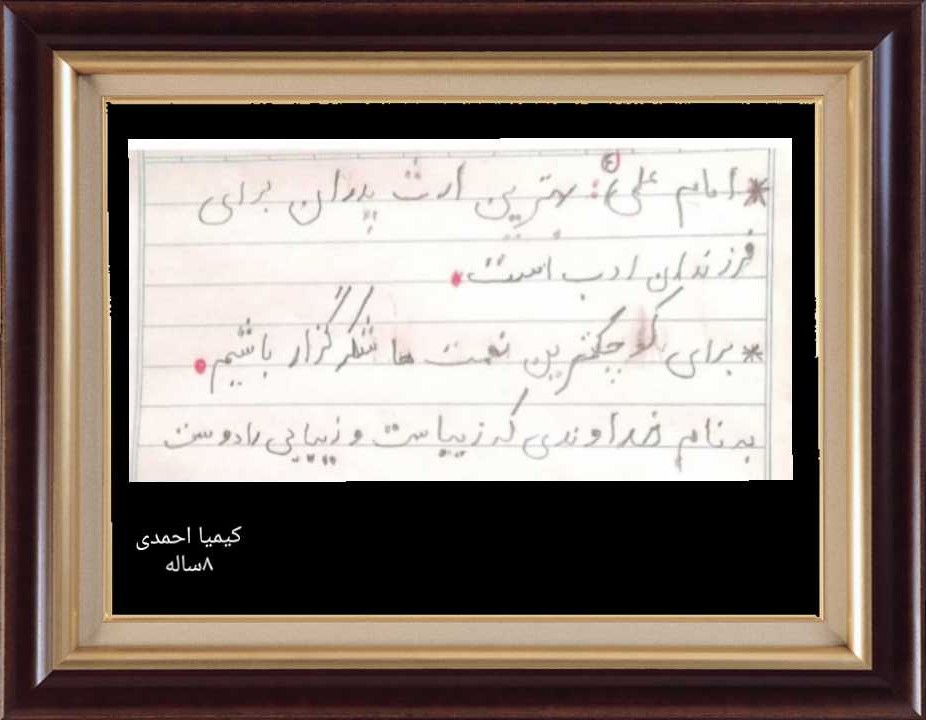 * امام علی (ع): بهترین ارث پدران برای
فرزندان ادب است.
* برای کوچکترین نعمت ها شکرگزار باشیم.
به نام خداوندی که زیباست و زیبایی را دوست
کیمیا احمدی
۸ساله